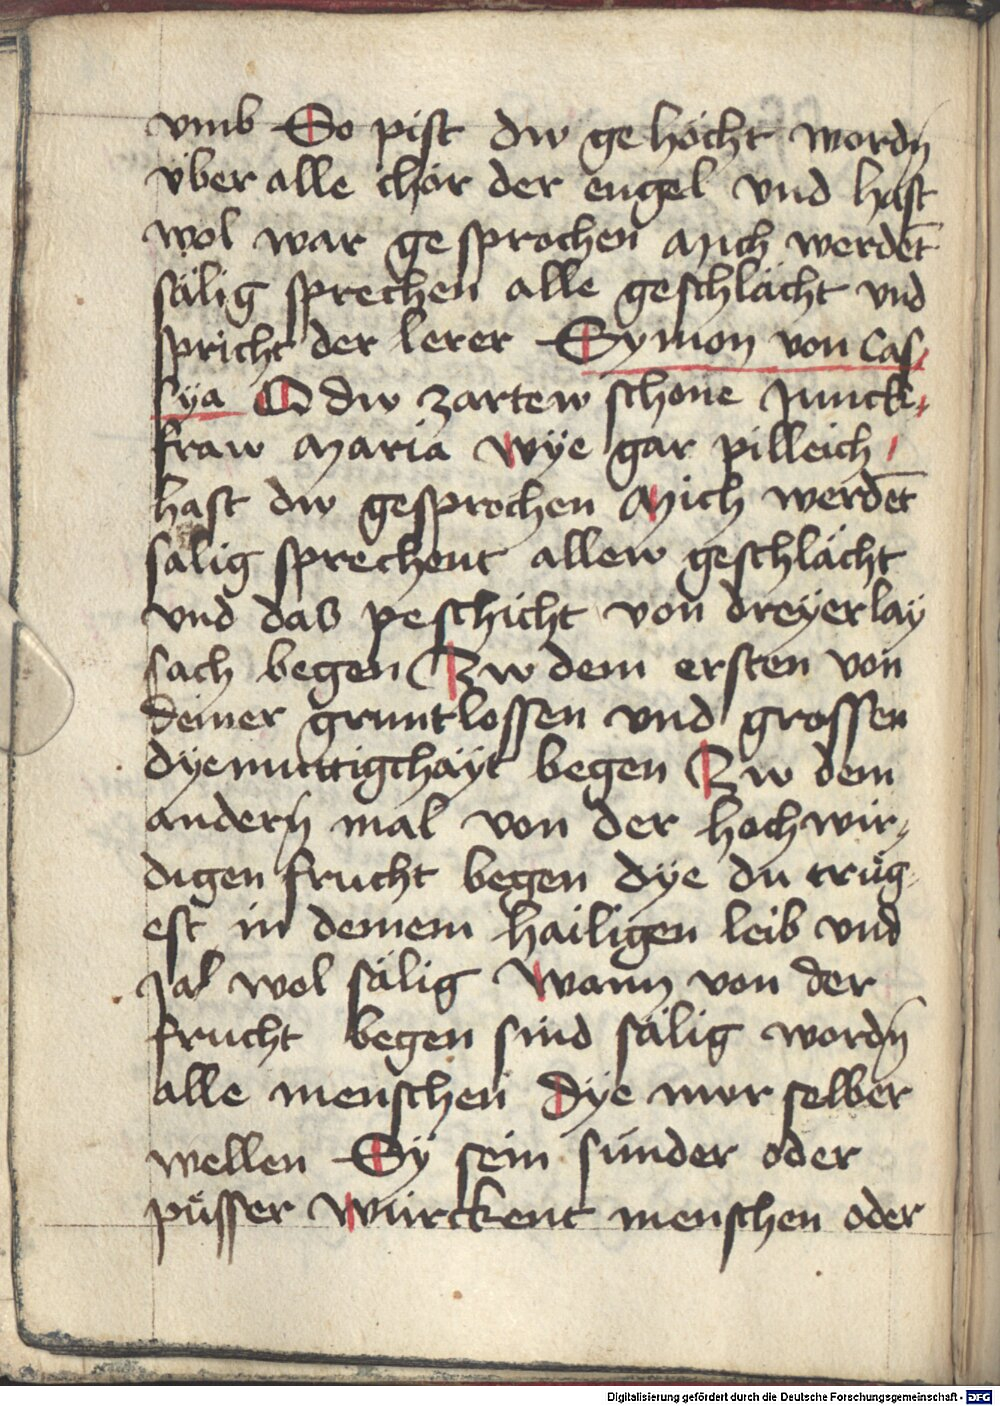 vmb So pist dw gehöcht wordn̄
v̈ber alle chör der engel vnd hast
wol war gesprochen Mich werdet̄
sälig sprechen alle geschlächt vnd
spricht der lerer Symon von Cas-
sya O dw zartew schone Junck-
fraw Maria wye gar pilleich
hast dw gesprochen Mich werdet̄
salig sprechent allew geschlächt
vnd das peschicht von dreyerlay
sach begen Zw dem ersten von
deiner gruntlossen vnd grossen
dyemuttigchäyt begen Zw dem
andern̄ mal von der hochwir-
digen frucht begen dye du trůg-
est in deinem hailigen leib vnd
Ja wol sälig Wann von der
frucht begen sind sälig wordn̄
alle menschen Dye nwr selber
wellen Sy sein sünder oder
půsser Würckent menschen oder
Digitalisierung gefördert durch die Deutsche Forschungsgemeinschaft - DFG